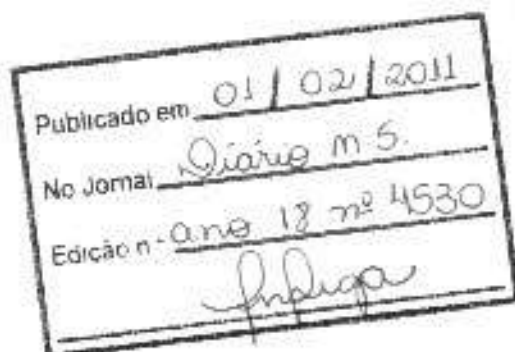 Publicado em 01/02/2011
No Jornal Diário M S.
Edição nº ano 18 nº 4530